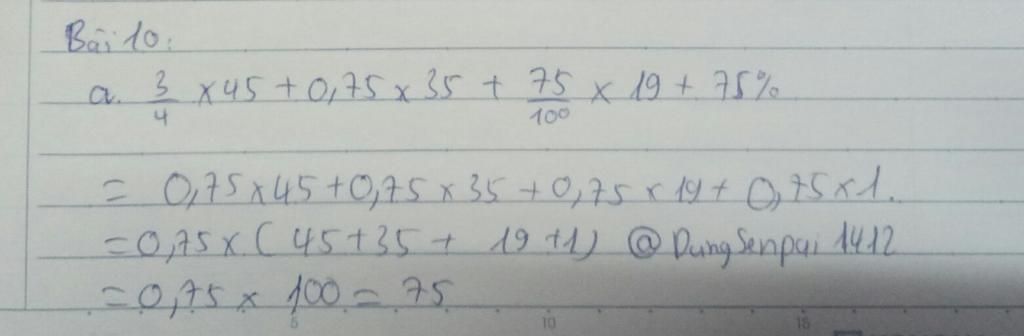 Bài 10:
a. 3/4 x 45 + 0,75 x 35 + 75/100 x 19 + 75%
= 0,75 x 45 + 0,75 x 35 + 0,75 x 19 + 0,75 x 1.
= 0,75 x ( 45 + 35 + 19 + 1 ) @DungSenpai1412
= 0,75 x 100 = 75
5 10 15